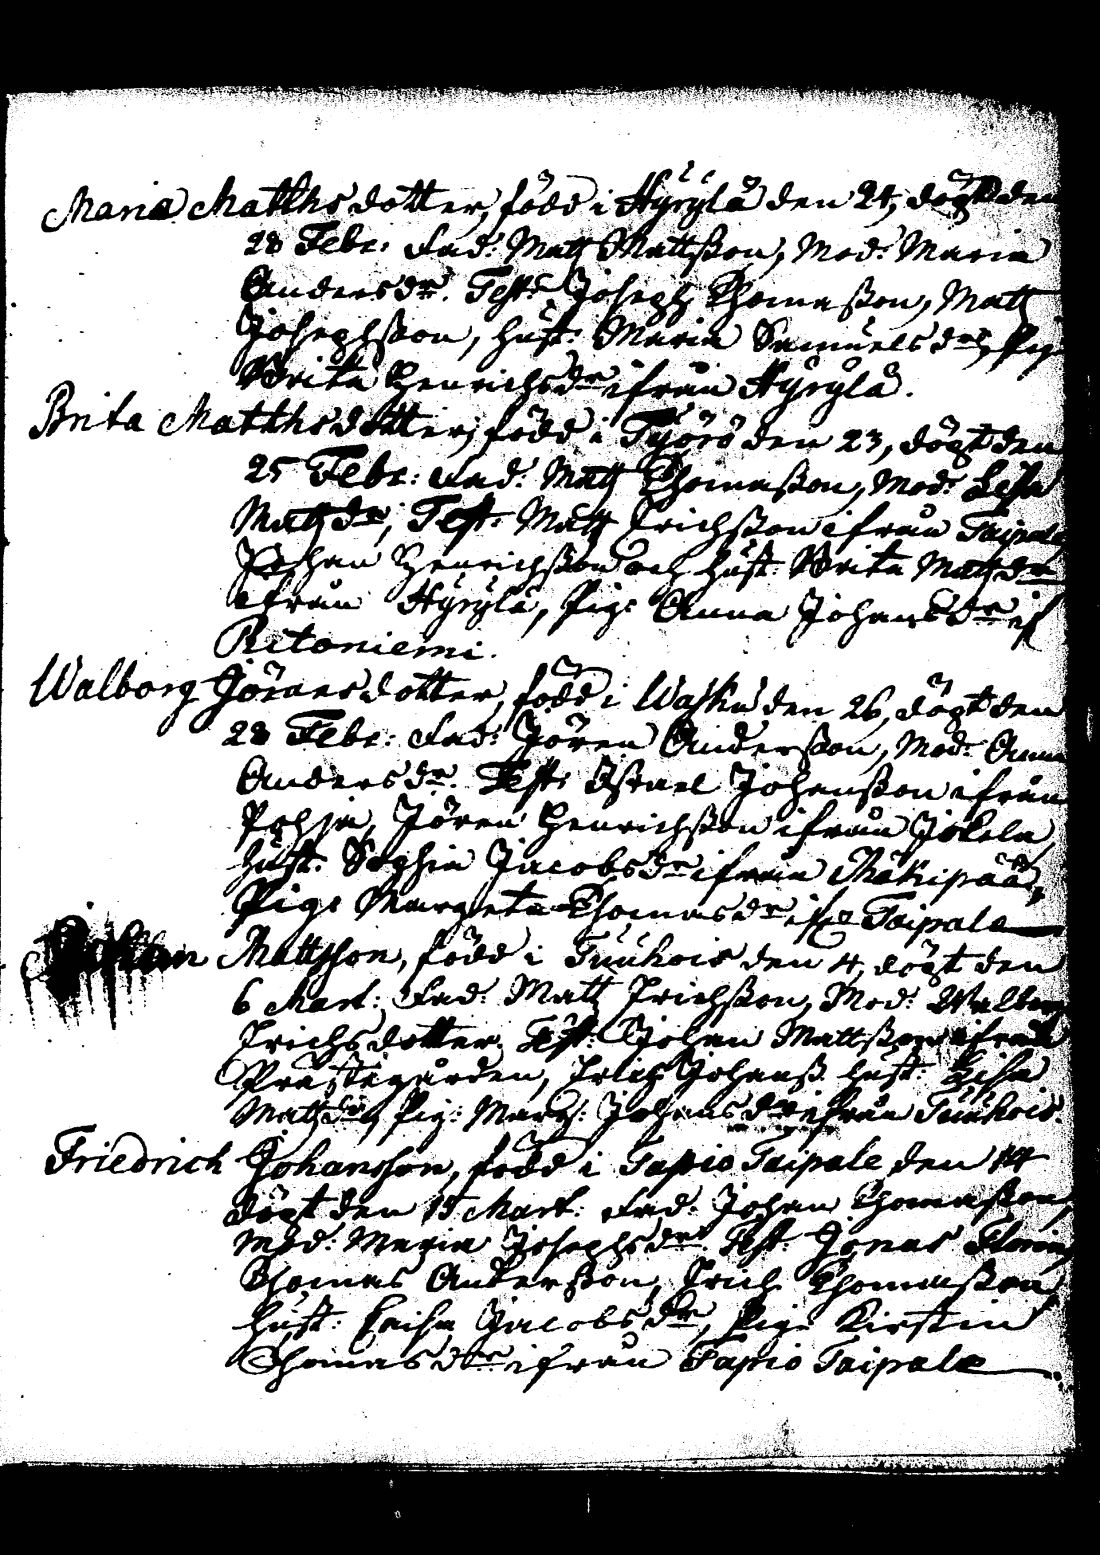 Maria Matthsdotter, född i Hyrylä den 24, dögt den
28 Febr: Fad: Matts Mattsson, Mod: Maria
Andersdr. Test: Joseph Thomasson, Matts
Josephsson, hust: Maria Samuelsdr, Pig:
Brita Henrichsdr ifrån Hyrylä.
Brita Matthsdotter, född i Työrö den 23, dögt den
25 Febr: Fad: Matts Thomasson, Mod: Lisa
Mattsdr, Test: Matts Erichsson ifrån Taipale
Johan Henrichsson och hust: Brita Mattsdr
ifrån Hyrylä, Pig: Anna Johansdr if
Retoniemi.
Walborg Göransdotter, född i Waska den 26, dögt den
28 Febr: Fad: Jören Andersson, Mod: Anna
Andersdr. Test: Israel Johansson ifrån
Pohja, Jören Henrichsson ifrån Jokela,
hust: Sophia Jacobsdr ifrån Mäkipää,
Pig: Margreta Thomasdr ifrån Taipale
Johan Mattsson, född i Tuuhois den 4, dögt den
6 Mart: Fad: Matts Erichsson, Mod: Walborg
Erichsdotter. Test: Johan Mattsson ifrån
Prästegården, Erich Johanss. hust: Lisa
Mattsdr, Pig: Marg: Johansdr ifrån Tuuhois.
Friedrich Johansson, född i Tapio Taipale den 14
dögt den 15 Mart: Fad: Johan Thomasson,
Mod: Maria Josephsdr. Test: Jonas Florin,
Thomas Andersson, Erich Thomasson,
hust: Caisa Jacobsdr, Pig: Kirstin
Thomasdr ifrån Tapio Taipale